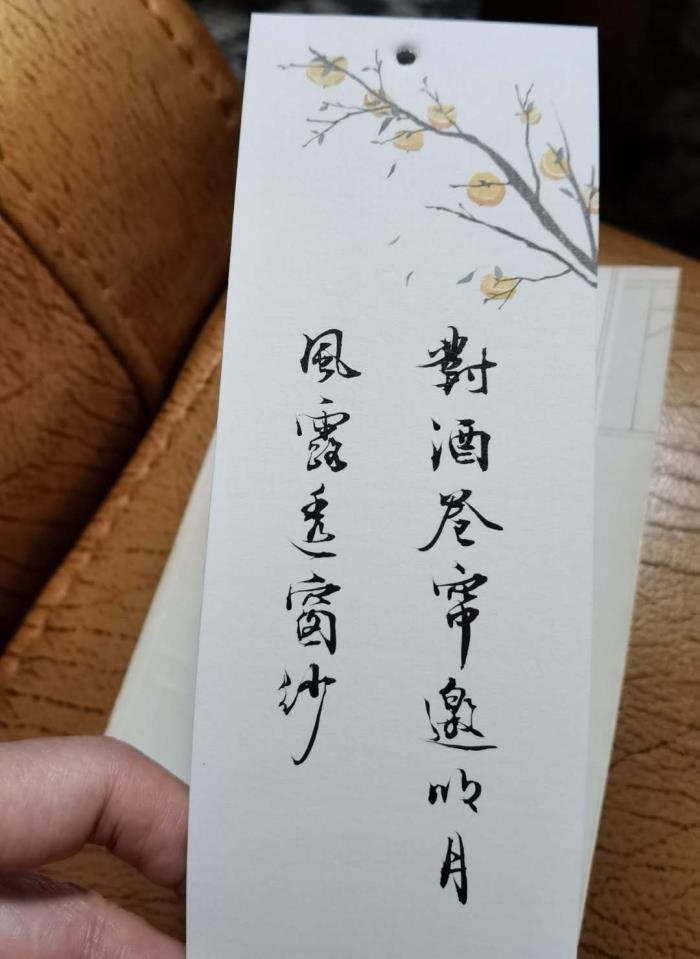 對酒卷帘邀明月
風露透窗紗